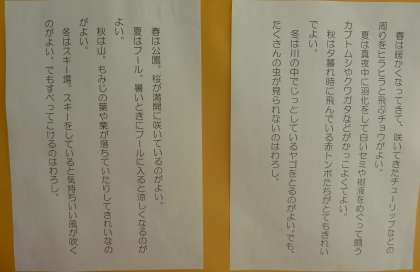 春は暖かくなってきて、咲いてきたチューリップなどの
周りをヒラヒラと飛ぶチョウがよい。
夏は真夜中に羽化をして白いセミや樹液をめぐって闘う
カブトムシやクワガタなどがかっこよくてよい。
秋は夕暮れ時に飛んでいる赤トンボたちがとてもきれい
でよい。
冬は川の中でじっとしているヤゴをとるのがよい。でも、
たくさんの虫が見られないのはわろし。
春は公園。桜が満開に咲いているのがよい。
夏はプール。暑いときにプールに入ると涼しくなるのが
よい。
秋は山。もみじの葉や栗が落ちていたりしてきれいなの
がよい。
冬はスキー場。スキーをしていると気持ちいい風が吹く
のがよい。でもすべってこけるのはわろし。